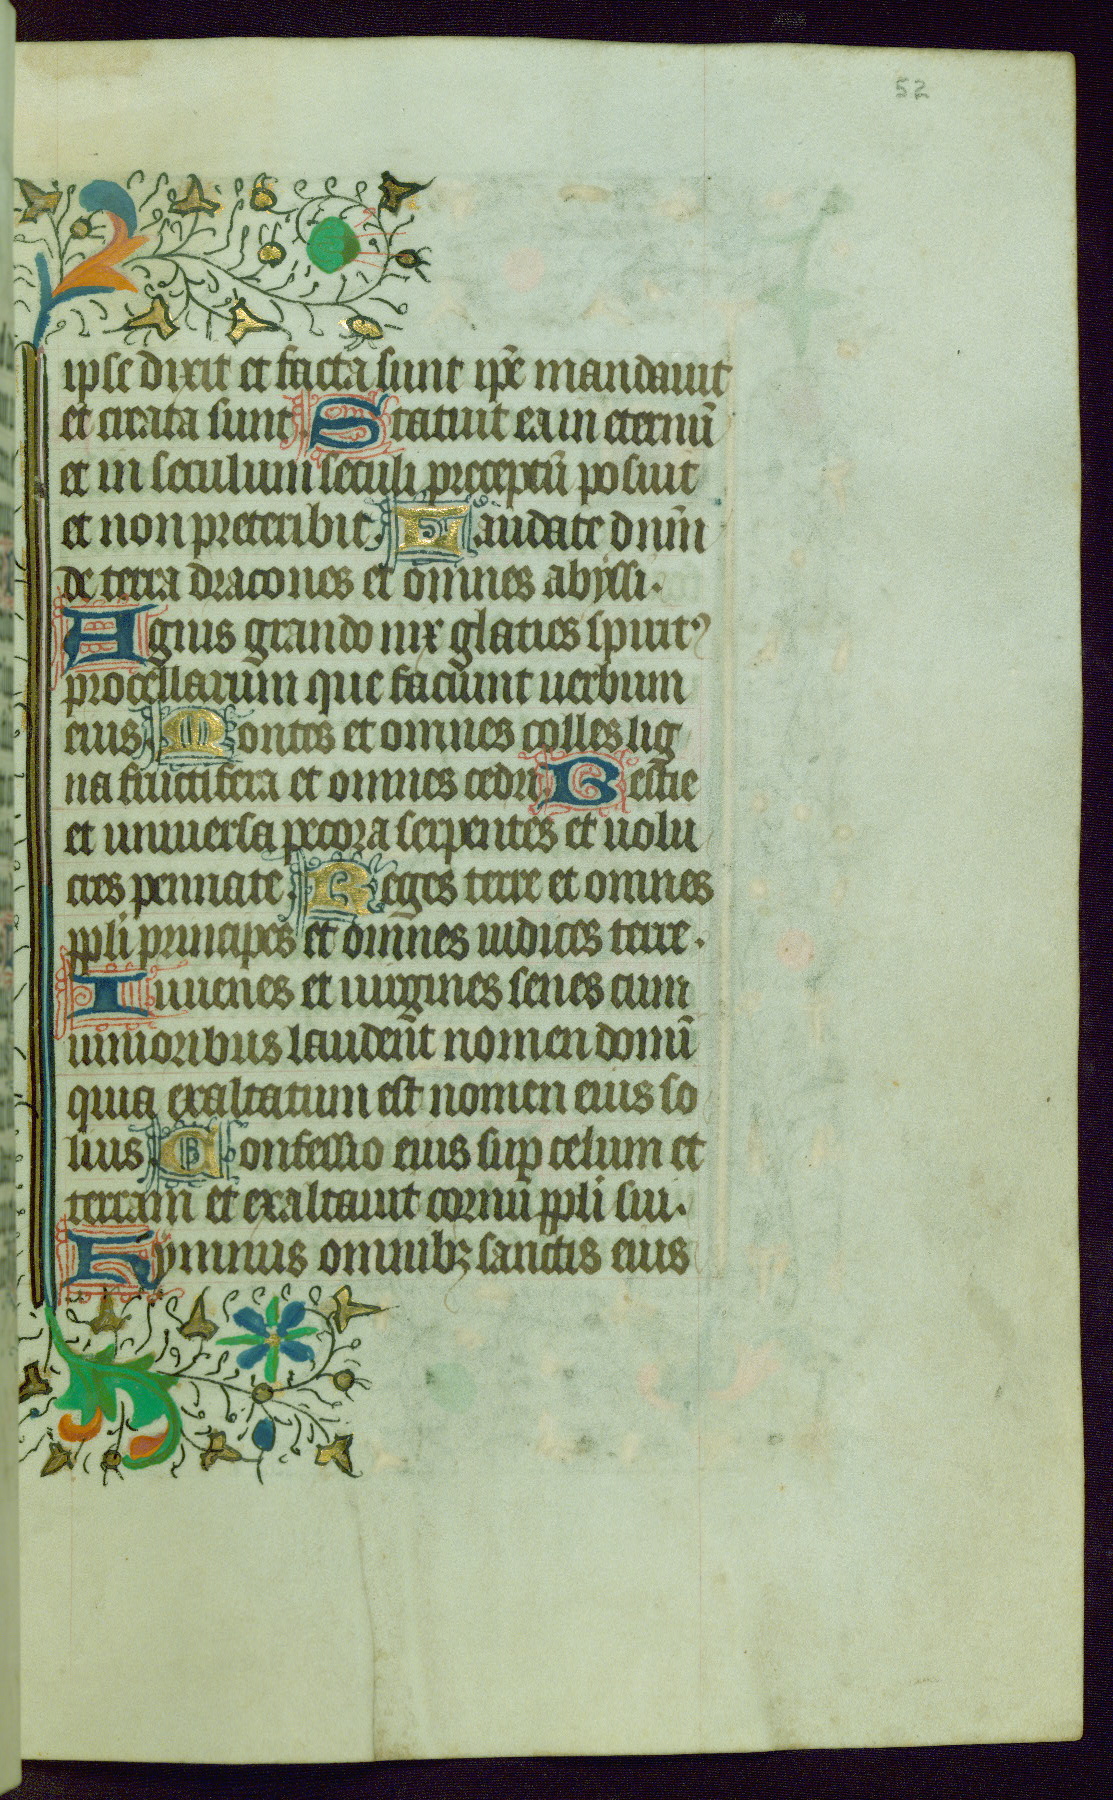 52
ipse dixit et facta sunt ip̄e mandauit
et creata sunt. Statuit ea in eternū
et in seculum seculi preceptū posuit
et non preteribit. Laudate dnm̄
de terra dracones et omnes abyssi.
Agius grando nix glaties spiritꝰ
procellarum que faciunt uerbum
eius. Montes et omnes colles lig
na fructifera et omnes cedri. Bestie
et uniuersa pecora serpentes et uolu
cres pennate. Reges terre et omnes
ppli principes et omnes iudices terre.
Iuuenes et uirgines senes cum
iunioribus laudēt nomen domī
quia exaltatum est nomen eius so
lius. Confessio eius sup celum et
terram et exaltauit cornū ppli sui.
Hymnus omnibꝫ sanctis eius